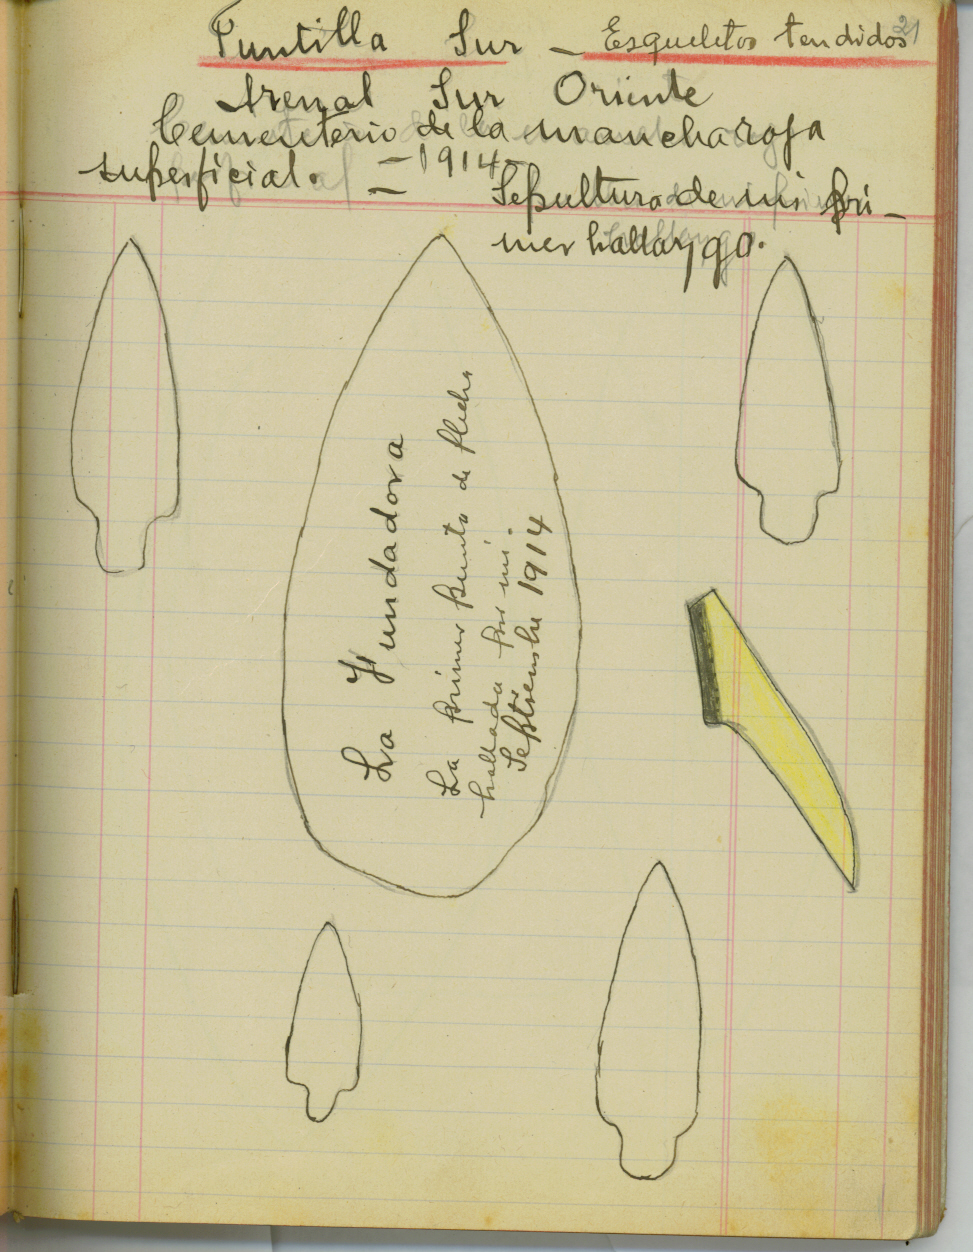 21
Puntilla Sur - Esqueletos tendidos
Arenal Sur Oriente
Cementerio de la mancha roja
superficial. - 1914 -
Sepultura de mi pri-
mer hallazgo.
La Fundadora
La primer punta de flecha
hallada por mi.
Septiembre 1914